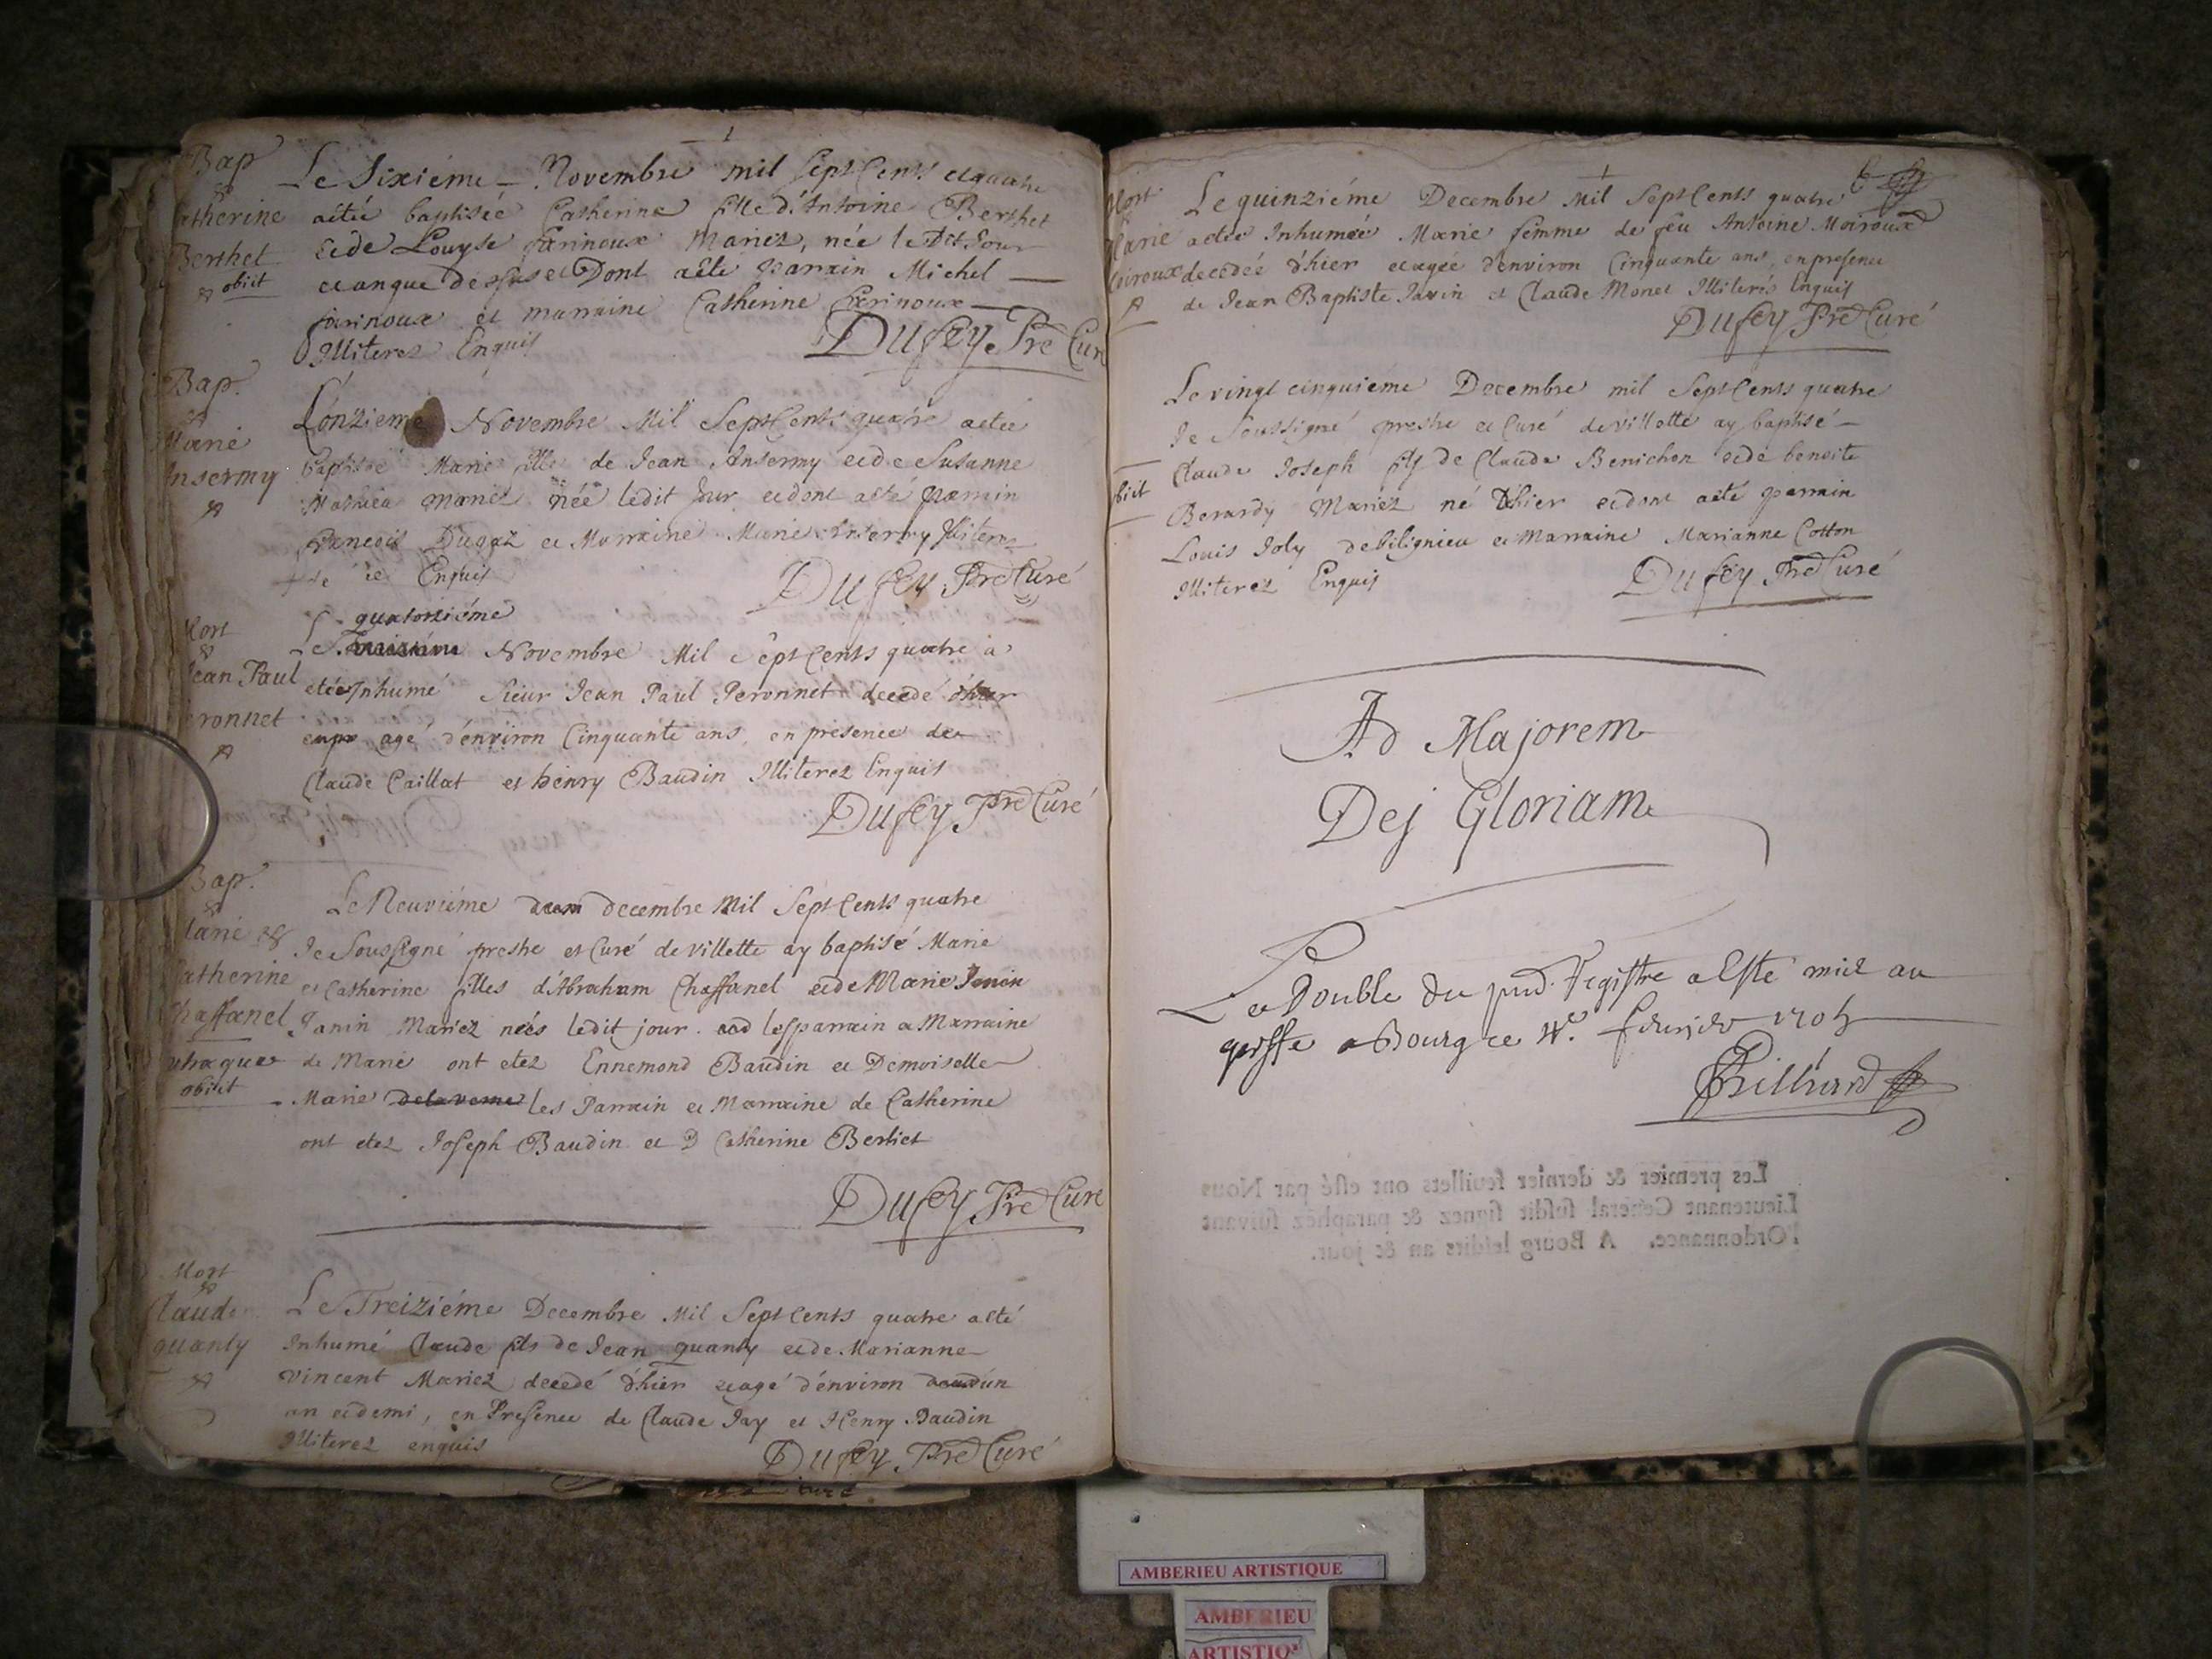 Bap
Catherine
Berthet
obiit
Le Sixiéme Novembre mil Sept Cents et quatre
aétée baptisée Catherine fille d'Antoine Berthet
et de Louyse farinoux Mariez, née le Dit Jour
et an que dessus et Dont aété parrain Michel
farinoux et marraine Catherine farinoux
Illiterez Enquis
Dufey Pre Curé
Bap.
Marie
Ansermy
L'onzieme Novembre Mil Sept Cents quatre aetée
baptisée Marie fille de Jean Ansermy et de Susanne
Mathieu mariez née ledit Jour et dont aété parrain
francois Dugaz et Marraine Marie Ansermy Illiterez
de ce Enquis
Dufey Pre Curé
Mort
Jean Paul
Peronnet
quatorziéme
Le Novembre Mil Sept Cents quatre a
etée Inhumé Sieur Jean Paul Peronnet decedé d'hier
agé d'environ Cinquante ans, en presence de
Claude Caillat et henry Baudin Illiterez Enquis
Dufey Pre Curé
Bap.
Marie &
Catherine
Chaffanel
utraque
obiit
Le Neuviéme decem decembre Mil Sept Cents quatre
Je Soussigné prestre et Curé de villette ay baptisé Marie
et Catherine filles d'Abraham Chaffanel et de Marie Janin
Janin Mariez neés ledit jour les parrain et Marraine
de Marie ont etez Ennemond Baudin et Demoiselle
Marie les Parrain et Marraine de Catherine
ont etez Joseph Baudin et D Catherine Berliet
Dufey Pre Curé
Mort
Claude
quanty
Le Treiziéme Decembre Mil Sept Cents quatre aété
Inhumé Claude fils de Jean quanty et de Marianne
vincent Mariez decedé d'hier et agé d'environ d'un
an et demi, en Presence de Claude Jay et Henry Baudin
Illiterez enquis
Dufey Pre Curé
Mort
Marie
Moiroux
Le quinziéme Decembre Mil Sept Cents quatre
aetée Inhumée Marie femme de feu Antoine Moiroux
decedée d'hier et agée d'environ Cinquante ans, en presence
de Jean Baptiste Javin et Claude Monet Illiterés Enquis
Dufey Pre Curé
obiit
Le vingt cinquiéme Decembre mil Sept Cents quatre
Je Soussigné prestre et Curé de villette ay baptisé
Claude Joseph fils de Claude Benichon et de benoite
Berardy Mariez né d'hier et dont aété parrain
Louis Joly de biligneu et Marraine Marianne Cotton
Illiterez Enquis
Dufey Pre Curé
Ad Majorem
Dej Gloriam
Le Double du pnd. Registre a Esté mis au
greffe a Bourg ce febvrier 1705
Brilliard
Les premier & dernier feuillets ont esté par Nous
Lieutenant General susdit signez & paraphez suivant
l'Ordonnance. A Bourg lesdits an & jour.
AMBERIEU ARTISTIQUE
AMBERIEU
ARTISTIQ